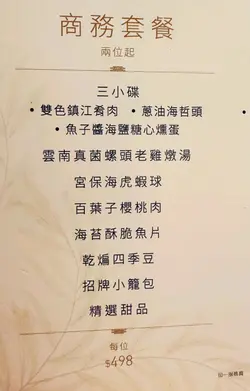 商務套餐
兩位起
三小碟
• 雙色鎮江肴肉 • 蔥油海哲頭
• 魚子醬海鹽糖心燻蛋
雲南真菌螺頭老雞燉湯
宮保海虎蝦球
百葉子櫻桃肉
海苔酥脆魚片
乾煸四季豆
招牌小籠包
精選甜品
每位
$498